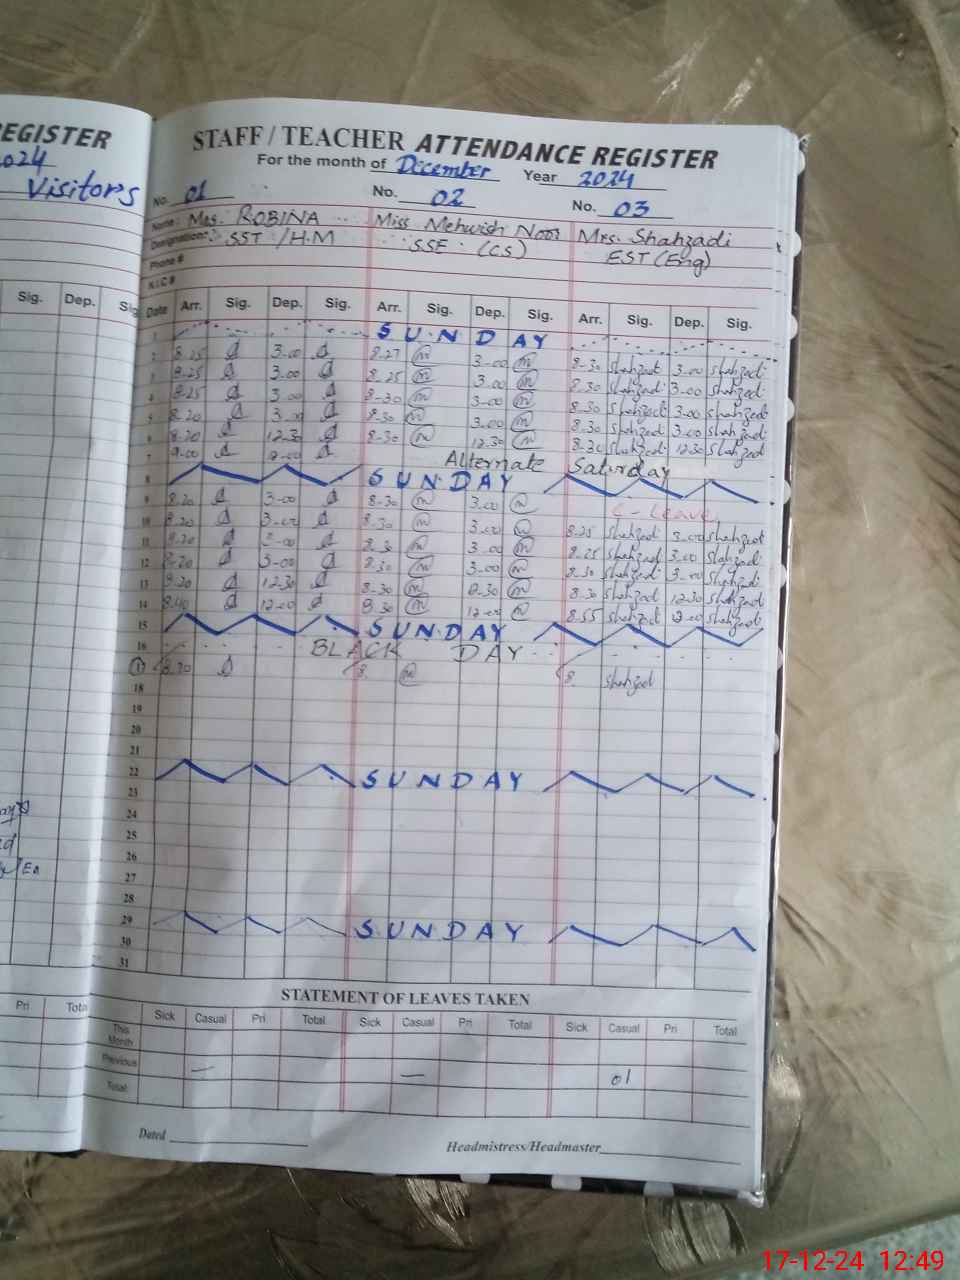 REGISTER
2024
Visitor's
Sig. Dep. Sig.
Pri Total
STAFF / TEACHER ATTENDANCE REGISTER
For the month of December Year 2024
No. 01 No. 02 No. 03
Name: Mrs. ROBINA Miss Mehwish Noor Mrs. Shahzadi
Designation: SST / H.M SSE (CS) EST (Eng)
Phone #
N.I.C #
Date Arr. Sig. Dep. Sig. Arr. Sig. Dep. Sig. Arr. Sig. Dep. Sig.
1 SUNDAY
2 8.25 3-00 8.27 3-00 8-30 Shahzadi 3-00 Shahzadi
3 8.25 3.00 8.25 3.00 8.30 Shahzadi 3-00 Shahzadi
4 8.25 3.00 8-30 3-00 8.30 Shahzadi 3-00 Shahzadi
5 8.20 3.00 8.30 3.00 8.30 Shahzadi 3.00 Shahzadi
6 8.20 12.30 8-30 12.30 8.30 Shahzadi 12.30 Shahzadi
7 9.00 12.00 Alternate Saturday
8 SUNDAY
9 8.20 3-00 8-30 3.00 C-Leave
10 8.20 3-00 8-30 3-00 8.25 Shahzadi 3-00 Shahzadi
11 8.20 3-00 8.30 3-00 8.25 Shahzadi 3.00 Shahzadi
12 8.20 3-00 8.30 3-00 8.30 Shahzadi 3-00 Shahzadi
13 8.20 12.30 8-30 12.30 8.30 Shahzadi 12.30 Shahzadi
14 8.40 12-00 8.30 12-00 8.55 Shahzadi 12.00 Shahzadi
15 SUNDAY
16 BLACK DAY
17 8.20 8. 8. Shahzadi
18
19
20
21
22 SUNDAY
23
24
25
26
27
28
29 SUNDAY
30
31
STATEMENT OF LEAVES TAKEN
Sick Casual Pri Total Sick Casual Pri Total Sick Casual Pri Total
This Month
Previous — — 01
Total:
Dated
Headmistress/Headmaster
17-12-24 12:49